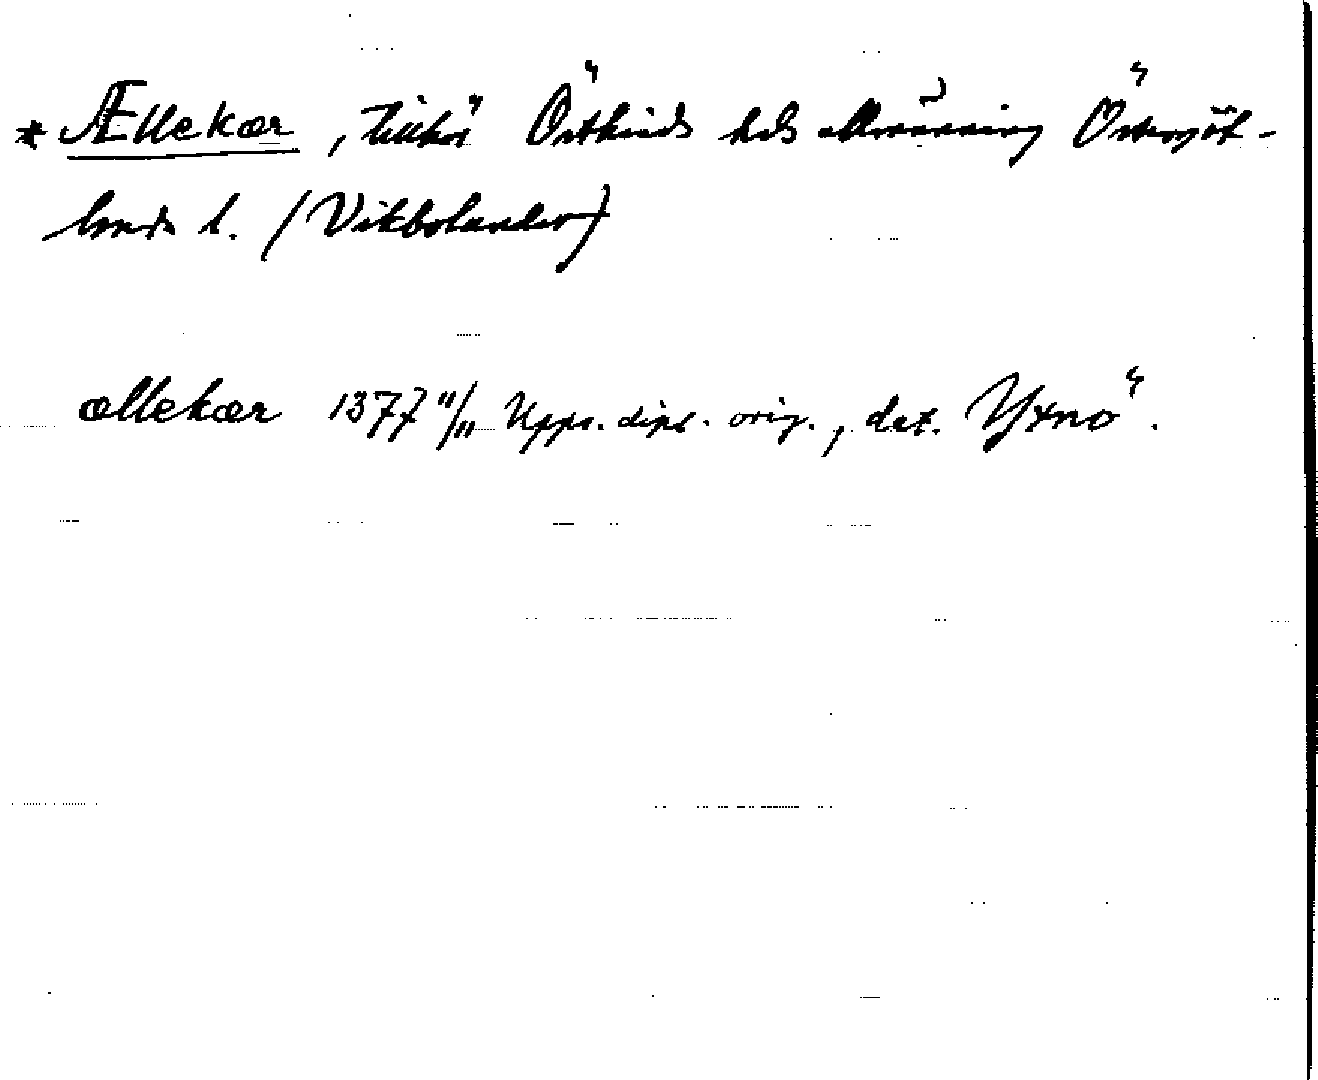 * Ællekær, tillhör Östkinds hds allmänning Östergöt-
lands l. (Vikbolandet)
ællekær 1377 11/11 Upps. dipl. orig., dat. Yxnö.